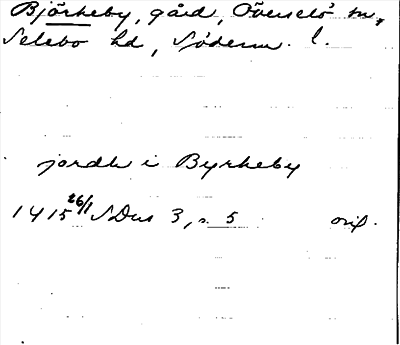 Björkeby, gård, Överselö sn,
Selebo hd, Söderm. l.
jordh i Byrkeby
1415 26/1 SDns 3, s. 5 orig.